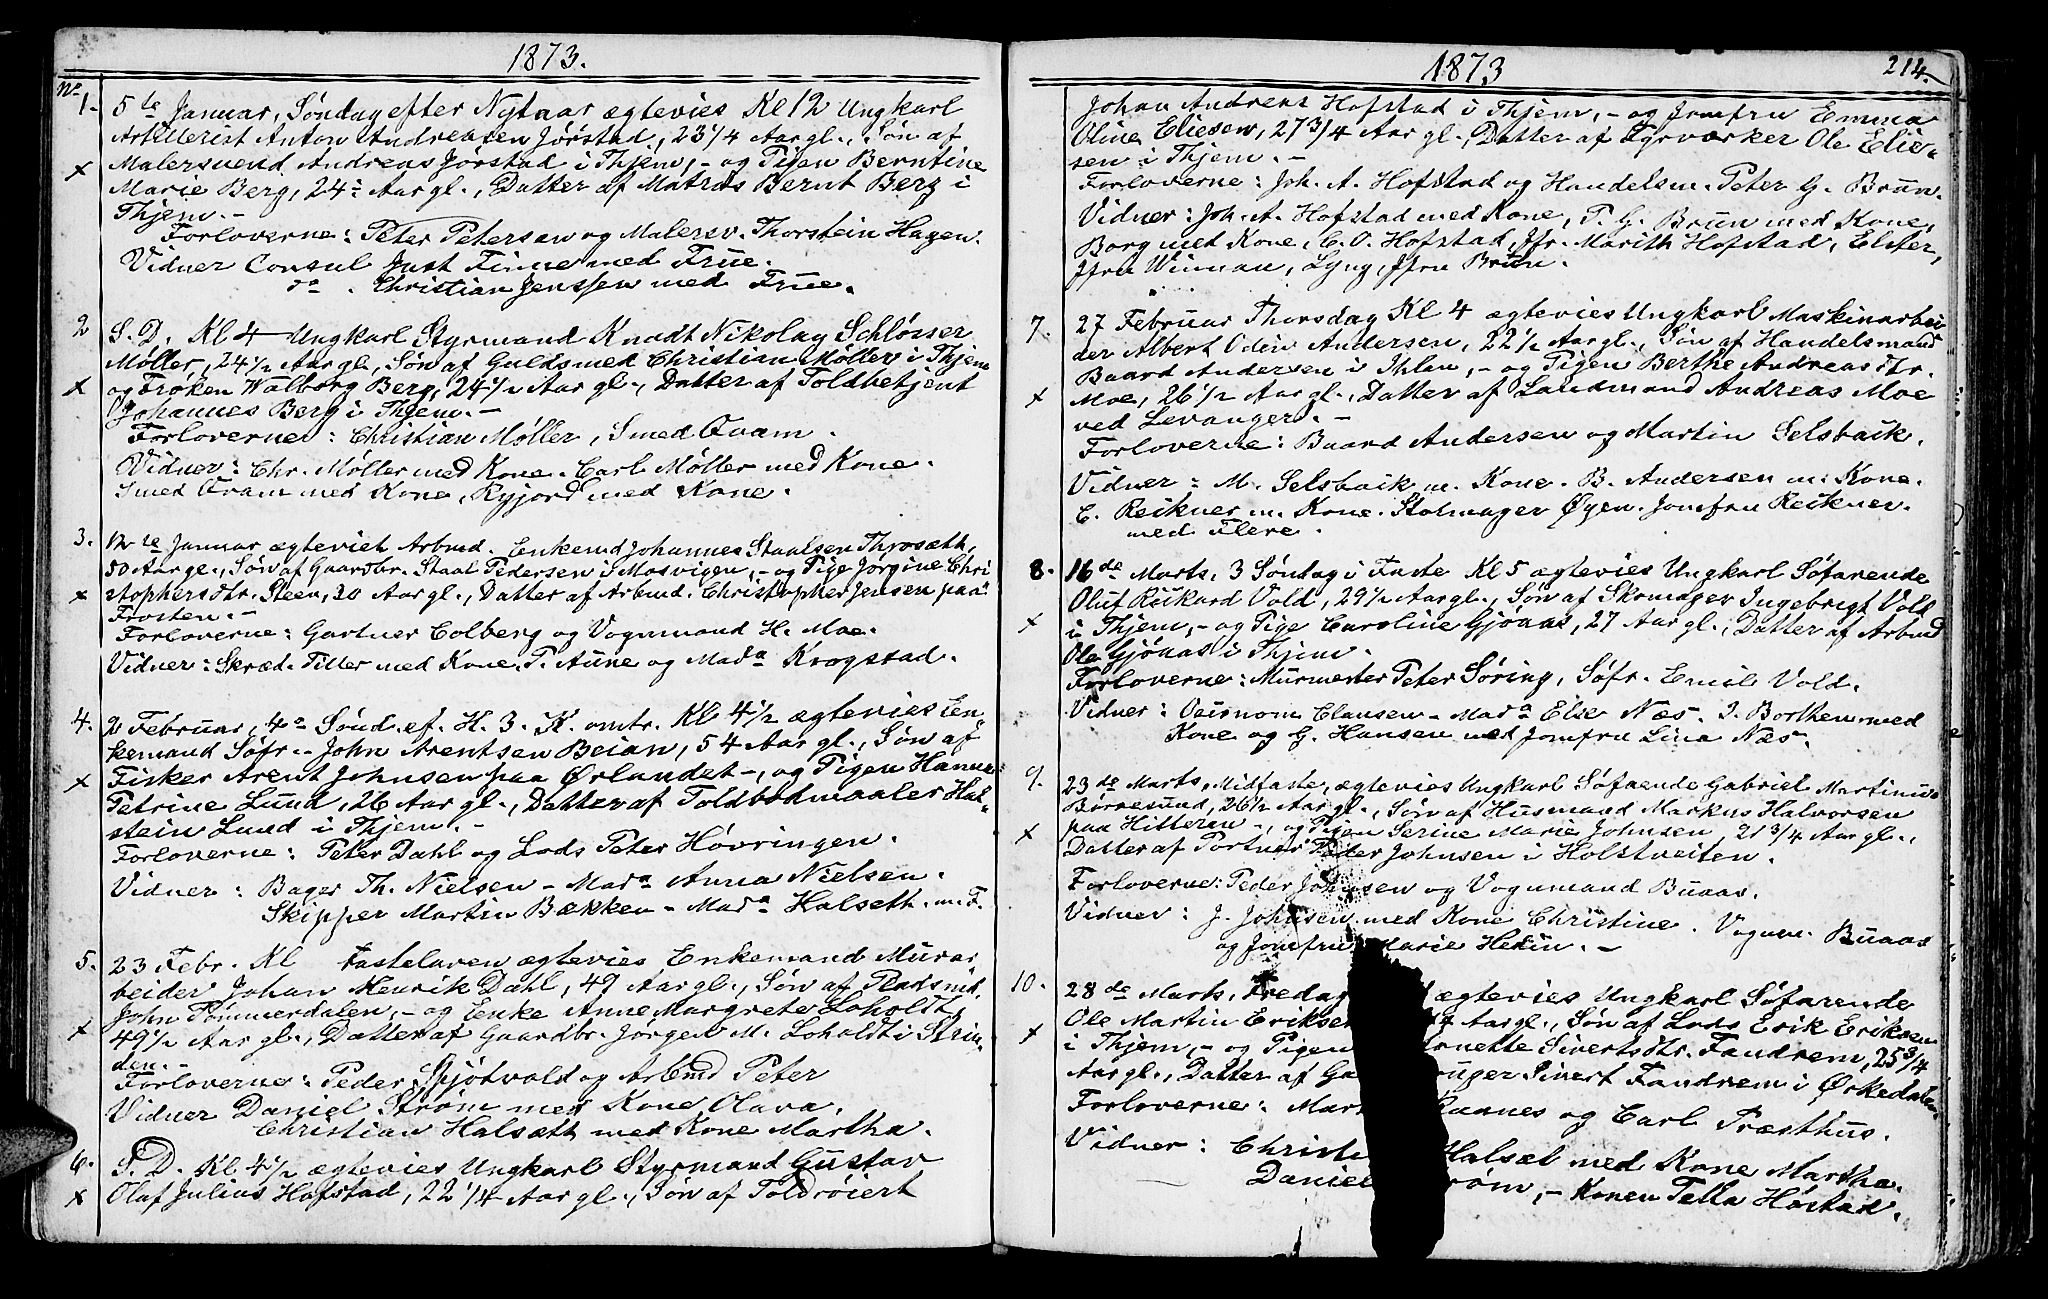 1873.
No
1. 5te Januar, Søndag efter Nytaar ægtevies Kl 12 Ungkarl
Artillerist Anton Andreasen Jørstad, 23 1/4 Aar gl., Søn af
Malersvend Andreas Jørstad i Thjem, - og Pigen Berntine
x Marie Berg, 24 Aar gl., Datter af Matros Bernt Berg i
Thjem. -
Forloverne: Peter Petersen og Malersv. Thorstein Hagen.
Vidner Consul Just Finne med Frue.
do. Christian Jenssen med Frue.
2 S. D. Kl 4 Ungkarl Styrmand Knudt Nikolay Schlösser
Møller, 24 1/2 Aar gl., Søn af Guldsmed Christian Møller i Thjem
x og Frøken Walborg Berg, 24 1/2 Aar gl., Datter af Toldbetjent
Johannes Berg i Thjem. -
Forloverne: Christian Møller, Smed Qvam.
Vidner: Chr. Møller med Kone. Carl Møller med Kone.
Smed Qvam med Kone, Ryjord med Kone.
3. 12te Januar ægteviet Arbmd. Enkemd Johannes Staalsen Throsæth,
50 Aar gl., Søn af Gaardbr. Staal Pedersen i Mosvigen, - og Pige Jørgine Chri
x stophersdtr. Steen, 30 Aar gl., Datter af Arbmd. Christopher Jensen paa
Frosten. -
Forloverne: Gartner Colberg og Vognmand H. Moe.
Vidner: Skræd. Tiller med Kone. P. Aune og Mada Krogstad.
4. 2 Februar, 4de Sønd. ef. H. 3. K. omtr. Kl 4 1/2 ægtevies En-
kemand Søfr. John Arentsen Beian, 54 Aar gl., Søn af
x Fisker Arent Johnsen paa Ørlandet -, og Pigen Hanna
Petrine Lund, 26 Aar gl., Datter af Toldbodmaaler Hal-
stein Lund i Thjem. -
Forloverne: Peter Dahl og Lods Peter Høvringen.
Vidner: Bager Th. Nielsen - Mada Anna Nielsen.
Skipper Martin Bækken - Mada Halseth. m. F.
5. 23 Febr. Kl Fastelaven ægtevies Enkemand Murar
beider Johan Henrik Dahl, 49 Aar gl., Søn af Pladsmd.
John Tømmerdalen, - og Enke Anne Margrete Loholdt,
x 49 1/2 Aar gl., Datter af Gaardbr. Jørgen M. Loholdt i Strin-
den. -
Forloverne: Peder Spjøtvold og Arbmd Peter
Vidner Daniel Strøm med Kone Olava.
Christian Halsæth med Kone Martha.
6. S. D. Kl 4 1/2 ægtevies Ungkarl Styrmand Gustav
x Olaf Julius Hofstad, 22 1/4 Aar gl., Søn af Toldrøiert
1873 214.
Johan Andreas Hofstad i Thjem, - og Jomfru Emma
Oline Eliesen, 27 3/4 Aar gl., Datter af Fyrværker Ole Elie-
sen i Thjem. -
Forloverne: Joh. A. Hofstad og Handelsm. Peter G. Brun.
Vidner: Joh. A. Hofstad med Kone, P. G. Brun med Kone,
Borg med Kone, C. O. Hofstad, Jfr. Marith Hofstad, Elster,
Jfru Winnan, Lyng, Jfru Brun.
7. 27 Februar Thorsdag Kl 4 ægtevies Ungkarl Maskinarbei
der Albert Odin Andersen, 22 1/2 Aar gl., Søn af Handelsmand
Baard Andersen i Ihlen, - og Pigen Berthe Andreasdtr.
x Moe, 26 1/2 Aar gl., Datter af Landmand Andreas Moe
ved Levanger. -
Forloverne: Baard Andersen og Martin Selsbaik.
Vidner: M. Selsbaik m. Kone. B. Andersen m. Kone.
C. Reikner m. Kone. Stolmager Øyen. Jomfru Reikner.
med Flere.
8. 16de Marts, 3 Søndag i Faste Kl 5 ægtevies Ungkarl Søfarende
Oluf Rikard Vold, 29 1/2 Aar gl., Søn af Skomager Ingebrigt Vold
x i Thjem, - og Pige Caroline Gjønas, 27 Aar gl., Datter af Arbmd
Ole Gjønas i Thjem.
Forloverne: Murmester Peter Søring, Søfr. Emil Vold.
Vidner: Clausen - Mada Else Næs. J. Borthen med
Kone og G. Hansen med Jomfru Lina Næs.
9. 23de Marts, Midfaste, ægtevies Ungkarl Søfaende Gabriel Martinus
Børresund, 26 1/2 Aar gl., Søn af Husmand Markus Halvorsen
x paa Hitteren -, og Pigen Serine Marie Johnsen, 21 3/4 Aar gl.,
Datter af Portner Peder Johnsen i Holstveiten.
Forloverne: Peder Johnsen og Vognmand Buaas.
Vidner: J. Johnsen med Kone Christine. Vognm. Buaas
og Jomfru Marie Hexin. -
10. 28de Marts, Fredag ægtevies Ungkarl Søfarende
Ole Martin Eriksen Aar gl., Søn af Lods Erik Eriksen
x i Thjem, - og Pigen Sivertsdtr. Fandrem, 25 3/4
Aar gl., Datter af Sivert Fandrem i Ørkedalen.
Forloverne: Raanes og Carl Præsthus.
Vidner: Halsæt med Kone Martha.
Daniel Strøm, - Konen Tella Høstad.